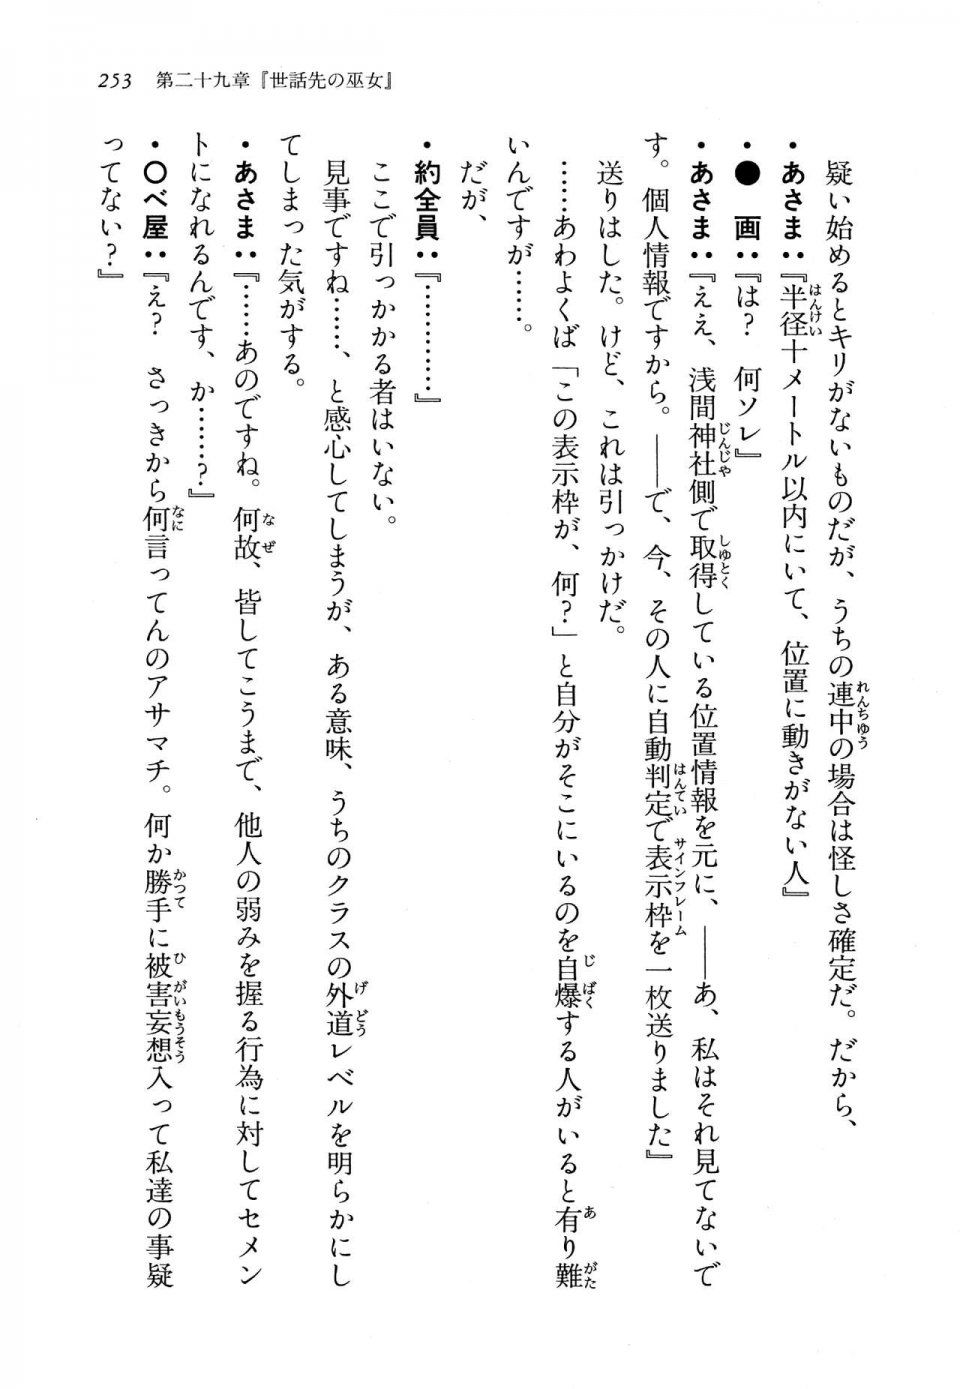 253　第二十九章『世話先の巫女』
　疑い始めるとキリがないものだが、うちの連中の場合は怪しさ確定だ。だから、
・あさま：『半径十メートル以内にいて、位置に動きがない人』
・●　画：『は？　何ソレ』
・あさま：『ええ、浅間神社側で取得している位置情報を元に、――あ、私はそれ見てないで
す。個人情報ですから。――で、今、その人に自動判定で表示枠を一枚送りました』
　送りはした。けど、これは引っかけだ。
　……あわよくば「この表示枠が、何？」と自分がそこにいるのを自爆する人がいると有り難
いんですが……。
　だが、
・約全員：『…………』
　ここで引っかかる者はいない。
　見事ですね……、と感心してしまうが、ある意味、うちのクラスの外道レベルを明らかにし
てしまった気がする。
・あさま：『……あのですね。何故、皆してこうまで、他人の弱みを握る行為に対してセメン
トになれるんです、か……？』
・○べ屋：『え？　さっきから何言ってんのアサマチ。何か勝手に被害妄想入って私達の事疑
ってない？』